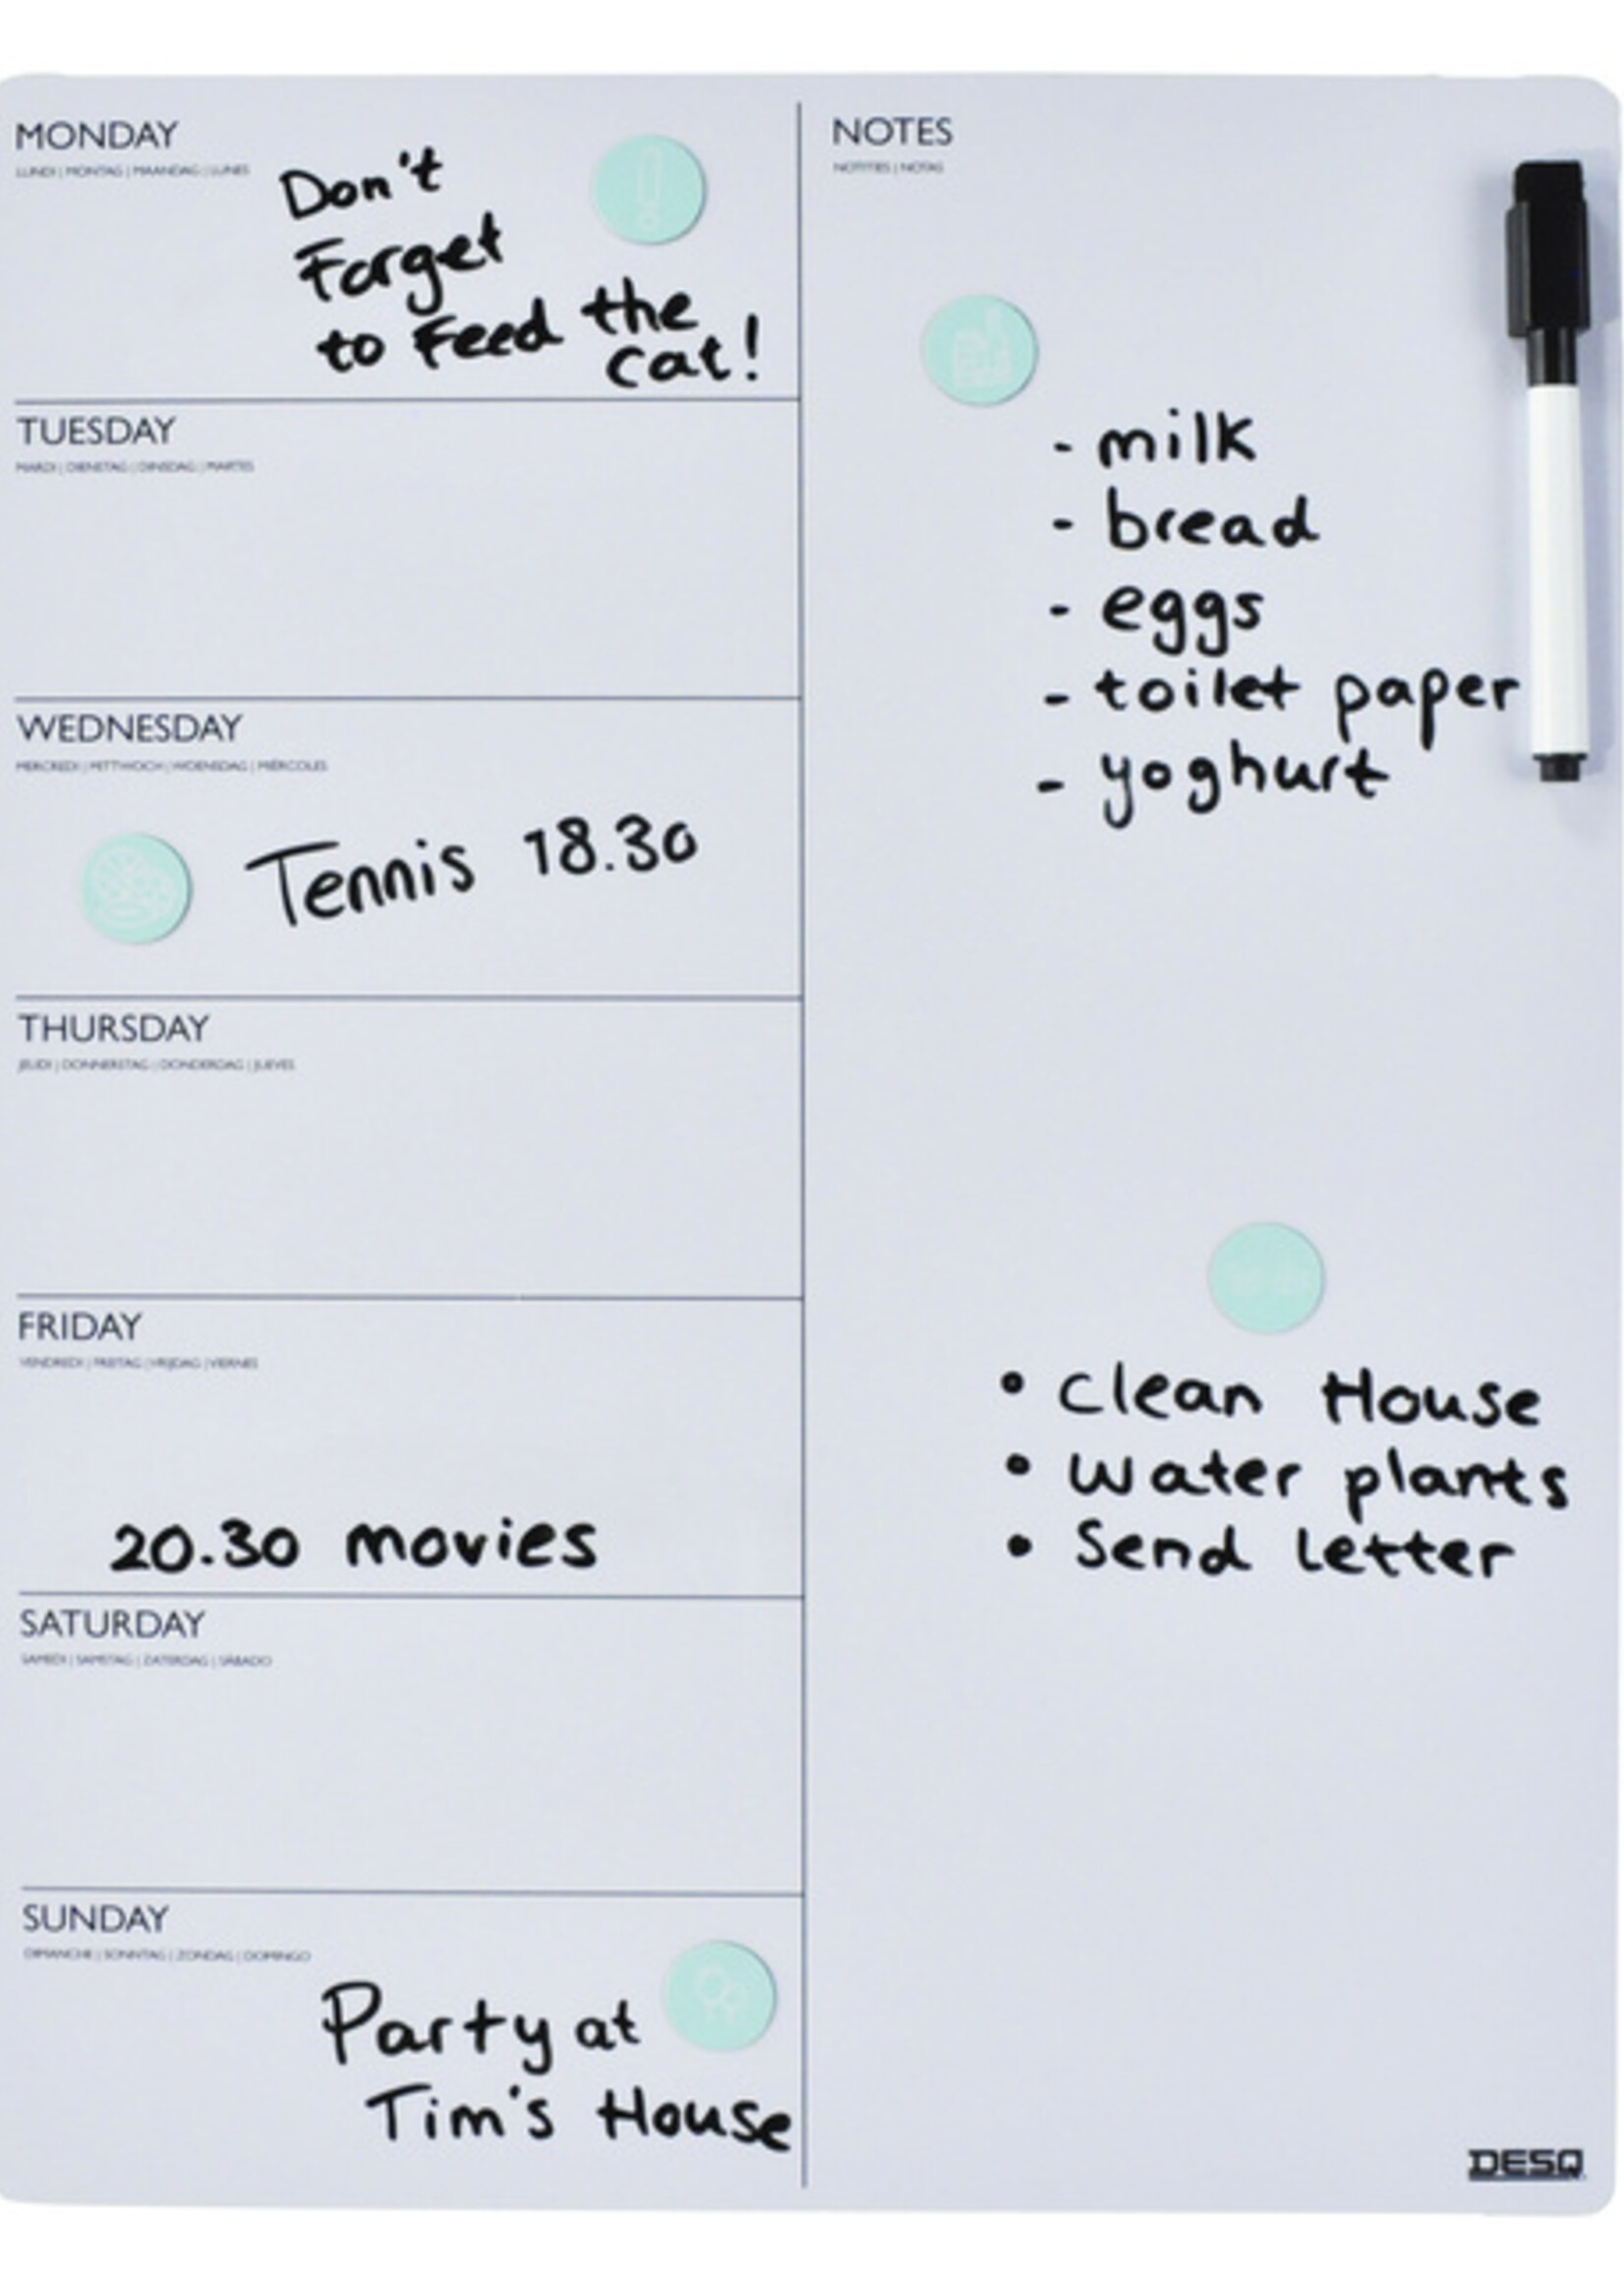 MONDAY
LUNDI | MONTAG | MAANDAG | LUNES
Don't
Forget
to Feed the
cat!
TUESDAY
MARDI | DIENSTAG | DINSDAG | MARTES
WEDNESDAY
MERCREDI | MITTWOCH | WOENSDAG | MIÉRCOLES
Tennis 18.30
THURSDAY
JEUDI | DONNERSTAG | DONDERDAG | JUEVES
FRIDAY
VENDREDI | FREITAG | VRIJDAG | VIERNES
20.30 movies
SATURDAY
SAMEDI | SAMSTAG | ZATERDAG | SÁBADO
SUNDAY
DIMANCHE | SONNTAG | ZONDAG | DOMINGO
Party at
Tim's House
NOTES
NOTITIES | NOTAS
- milk
- bread
- eggs
- toilet paper
- yoghurt
• clean House
• water plants
• Send letter
DESQ